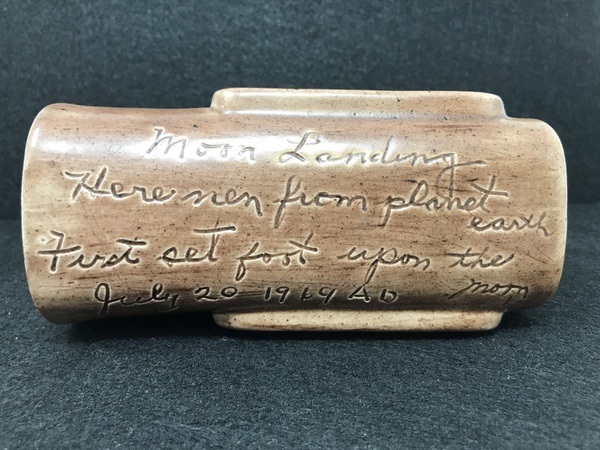 Moon Landing
Here men from planet
earth
First set foot upon the
moon
July 20-1969 AD